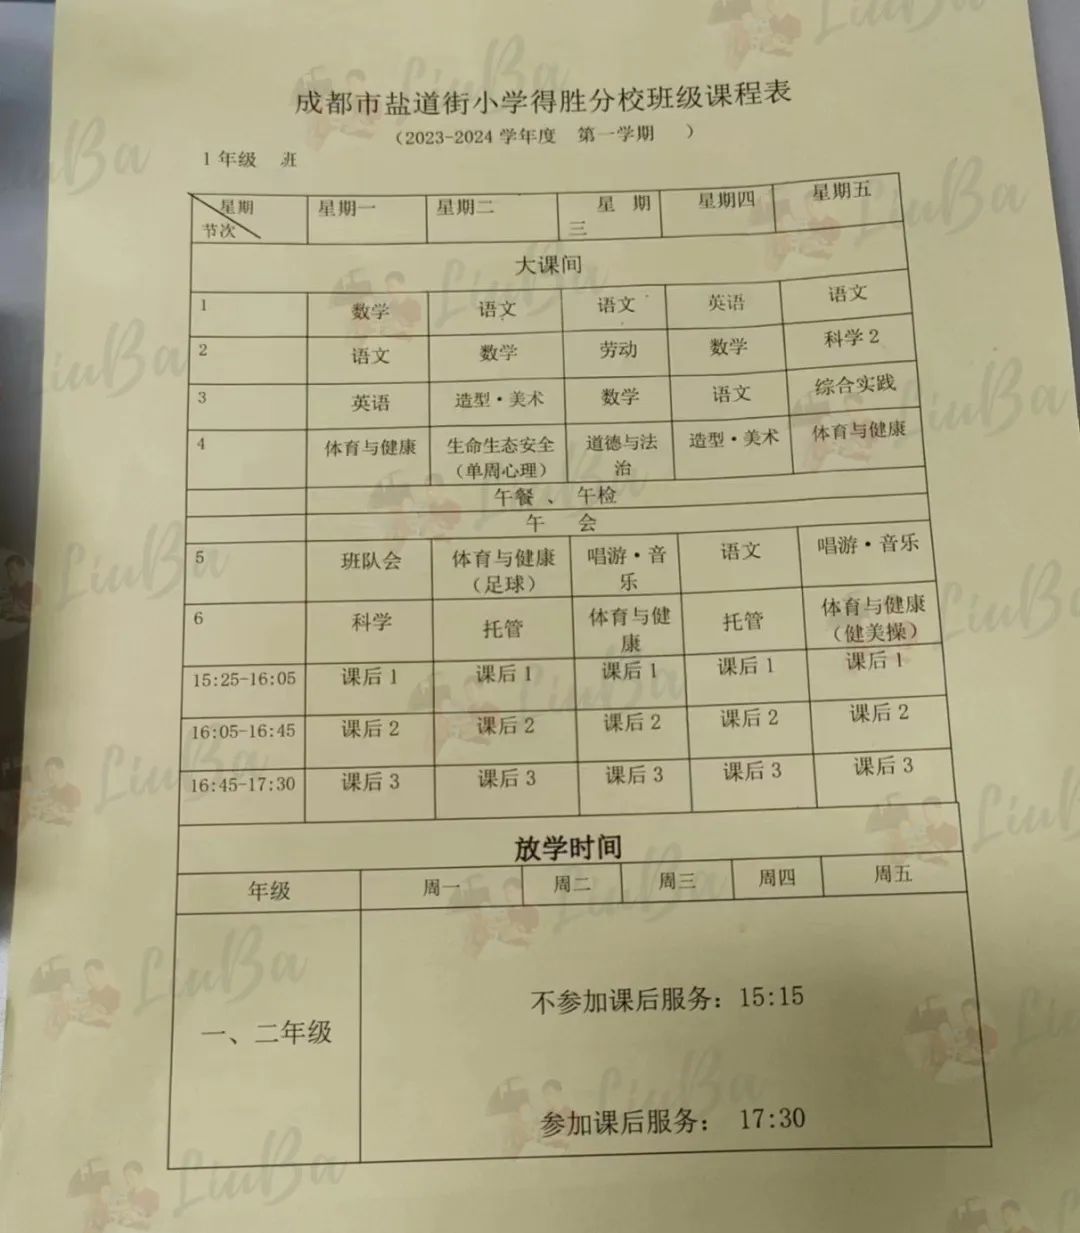 成都市盐道街小学得胜分校班级课程表
（2023-2024 学年度 第一学期 ）
1 年级 班
星期
节次
星期一 星期二 星 期 三 星期四 星期五
大课间
1 数学 语文 语文 英语 语文
2 语文 数学 劳动 数学 科学 2
3 英语 造型·美术 数学 语文 综合实践
4 体育与健康 生命生态安全（单周心理） 道德与法治 造型·美术 体育与健康
午餐 、 午检
午 会
5 班队会 体育与健康（足球） 唱游·音乐 语文 唱游·音乐
6 科学 托管 体育与健康 托管 体育与健康（健美操）
15:25-16:05 课后 1 课后 1 课后 1 课后 1 课后 1
16:05-16:45 课后 2 课后 2 课后 2 课后 2 课后 2
16:45-17:30 课后 3 课后 3 课后 3 课后 3 课后 3
放学时间
年级 周一 周二 周三 周四 周五
不参加课后服务：15:15
一、二年级
参加课后服务： 17:30
LiuBa